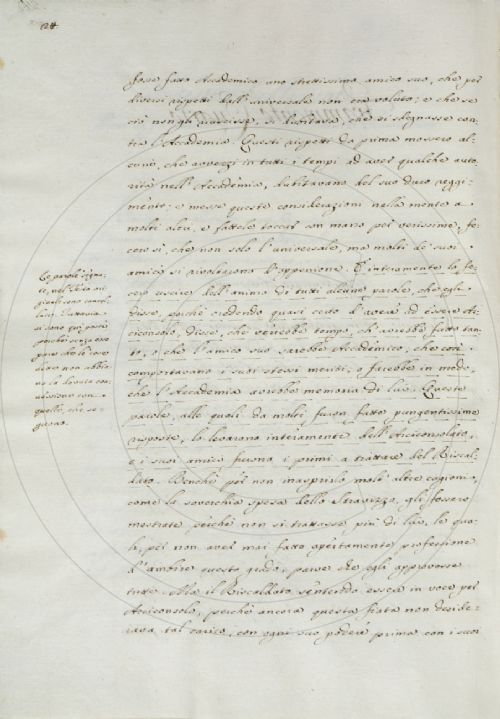 124
fosse fatto Accademico uno strettissimo amico suo, che per
diversi rispetti dall'universale non era voluto; e che se
ciò non gli riuscisse, si dubitava che si sdegnasse con-
tra l'Accademia. Questi rispetti da prima mossero al-
cuni, che avvezzi in tutti i tempi ad aver qualche auto-
rità nell'Accademia, dubitavano del suo duro reggi-
mento; e messe queste considerazioni nella mente a
molti altri, e fattele toccar con mano per verissime, fe-
cero sì, che non solo l'universale, ma molti de' suoi
amici si rivoltarono d'oppenione. E interamente lo fe-
cero uscire dell'animo di tutti alcune parole, che egli
disse, poichè credendo quasi certo d'avere ad essere Ar-
ciconsolo, disse, che verrebbe tempo, ch'avrebbe fatto tan-
to, che l'amico suo sarebbe Accademico, che così
comportavano i suoi stessi meriti; e farebbe in modo,
che l'Accademia avrebbe memoria di lui. Queste
parole, alle quali da molti furon fatte pungentissime
risposte, lo levarono interamente dell'Arciconsolato,
e i suoi amici furono i primi a trattare del Riscal-
dato. Benchè per non inasprirlo molt'altre cagioni,
come la soverchia spesa dello Stravizzo, gli fossero
mostrate perchè non si trattasse più di lui, le qua-
li, per non aver mai fatto apertamente professione
d'ambire questo grado, parve che egli approvasse
tutte. Ma il Riscaldato sentendo esser in voce per
Arciconsolo, perchè ancora questa fiata non deside-
rava tal carico, con ogni suo potere prima con i suoi
Le parole segna-
te, nell'altra ori-
ginale sono cancel-
late. Tuttavia
si sono qui poste
perchè senza esse
pare che le cose
dette non abbia-
no la dovuta con-
nessione con
quelle, che se-
guono.